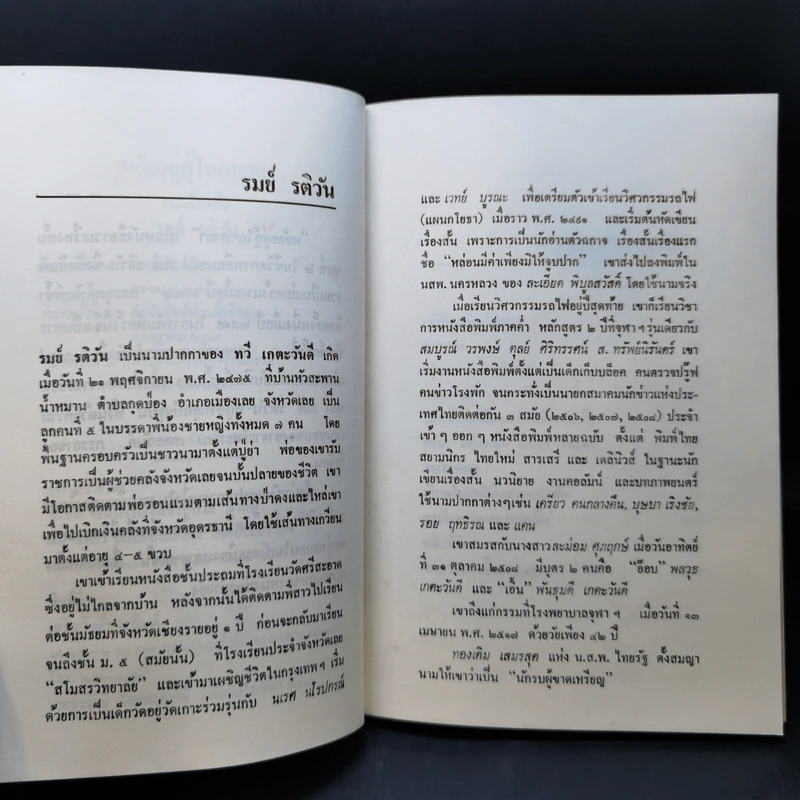 รมย์ รติวัน
รมย์ รติวัน เป็นนามปากกาของ ทวี เกตะวันดี เกิด
เมื่อวันที่ ๒๑ พฤศจิกายน พ.ศ. ๒๔๗๕ ที่บ้านหัวสะพาน
น้ำหมาน ตำบลกุดป่อง อำเภอเมืองเลย จังหวัดเลย เป็น
ลูกคนที่ ๕ ในบรรดาพี่น้องชายหญิงทั้งหมด ๗ คน โดย
พื้นฐานครอบครัวเป็นชาวนามาตั้งแต่ปู่ย่า พ่อของเขารับ
ราชการเป็นผู้ช่วยคลังจังหวัดเลยจนบั้นปลายของชีวิต เขา
มีโอกาสติดตามพ่อรอนแรมตามเส้นทางป่าดงและไหล่เขา
เพื่อไปเบิกเงินคลังที่จังหวัดอุดรธานี โดยใช้เส้นทางเกวียน
มาตั้งแต่อายุ ๔-๕ ขวบ
เขาเข้าเรียนหนังสือชั้นประถมที่โรงเรียนวัดศรีสะอาด
ซึ่งอยู่ไม่ไกลจากบ้าน หลังจากนั้นได้ติดตามพี่สาวไปเรียน
ต่อชั้นมัธยมที่จังหวัดเชียงรายอยู่ ๑ ปี ก่อนจะกลับมาเรียน
จนถึงชั้น ม. ๕ (สมัยนั้น) ที่โรงเรียนประจำจังหวัดเลย
“สโมสรวิทยาลัย” และเข้ามาเผชิญชีวิตในกรุงเทพฯ เริ่ม
ด้วยการเป็นเด็กวัดอยู่วัดเกาะร่วมรุ่นกับ นเรศ นโรปกรณ์
และ เวทย์ บูรณะ เพื่อเตรียมตัวเข้าเรียนวิศวกรรมรถไฟ
(แผนกโยธา) เมื่อราว พ.ศ. ๒๔๙๑ และเริ่มต้นหัดเขียน
เรื่องสั้น เพราะการเป็นนักอ่านตัวฉกาจ เรื่องสั้นเรื่องแรก
ชื่อ “หล่อนมีค่าเพียงมิให้จูบปาก” เขาส่งไปลงพิมพ์ใน
นสพ. นครหลวง ของ ละเอียด พิบูลสวัสดิ์ โดยใช้นามจริง
เมื่อเรียนวิศวกรรมรถไฟอยู่ปีสุดท้าย เขาก็เรียนวิชา
การหนังสือพิมพ์ภาคค่ำ หลักสูตร ๒ ปีที่จุฬาฯ รุ่นเดียวกับ
สมบูรณ์ วรพงษ์ ตุลย์ ศิริทรรศน์ ส. ทรัพย์นิรันดร์ เขา
เริ่มงานหนังสือพิมพ์ตั้งแต่เป็นเด็กเก็บบล็อค คนตรวจปรู๊ฟ
คนข่าวโรงพัก จนกระทั่งเป็นนายกสมาคมนักข่าวแห่งประ-
เทศไทยติดต่อกัน ๓ สมัย (๒๕๐๖, ๒๕๐๗, ๒๕๐๘) ประจำ
เข้า ๆ ออก ๆ หนังสือพิมพ์หลายฉบับ ตั้งแต่ พิมพ์ไทย
สยามนิกร ไทยใหม่ สารเสรี และ เดลินิวส์ ในฐานะนัก
เขียนเรื่องสั้น นวนิยาย งานคอลัมน์ และบทภาพยนตร์
ใช้นามปากกาต่างๆเช่น เครียว คนกลางคืน, บุษบา เริงชัย,
รอย ฤทธิรณ และ แคน
เขาสมรสกับนางสาวละม่อม ศุภฤกษ์ เมื่อวันอาทิตย์
ที่ ๓๑ ตุลาคม ๒๕๐๘ มีบุตร ๒ คนคือ “อ๊อบ” พลวุธ
เกตะวันดี และ “เอิ้น” พันธุมดี เกตะวันดี
เขาถึงแก่กรรมที่โรงพยาบาลจุฬาฯ เมื่อวันที่ ๑๓
เมษายน พ.ศ. ๒๕๑๗ ด้วยวัยเพียง ๔๒ ปี
ทองเติม เสมรสุต แห่ง น.ส.พ. ไทยรัฐ ตั้งสมญา
นามให้เขาว่าเป็น “นักรบผู้ขาดเหรียญ”